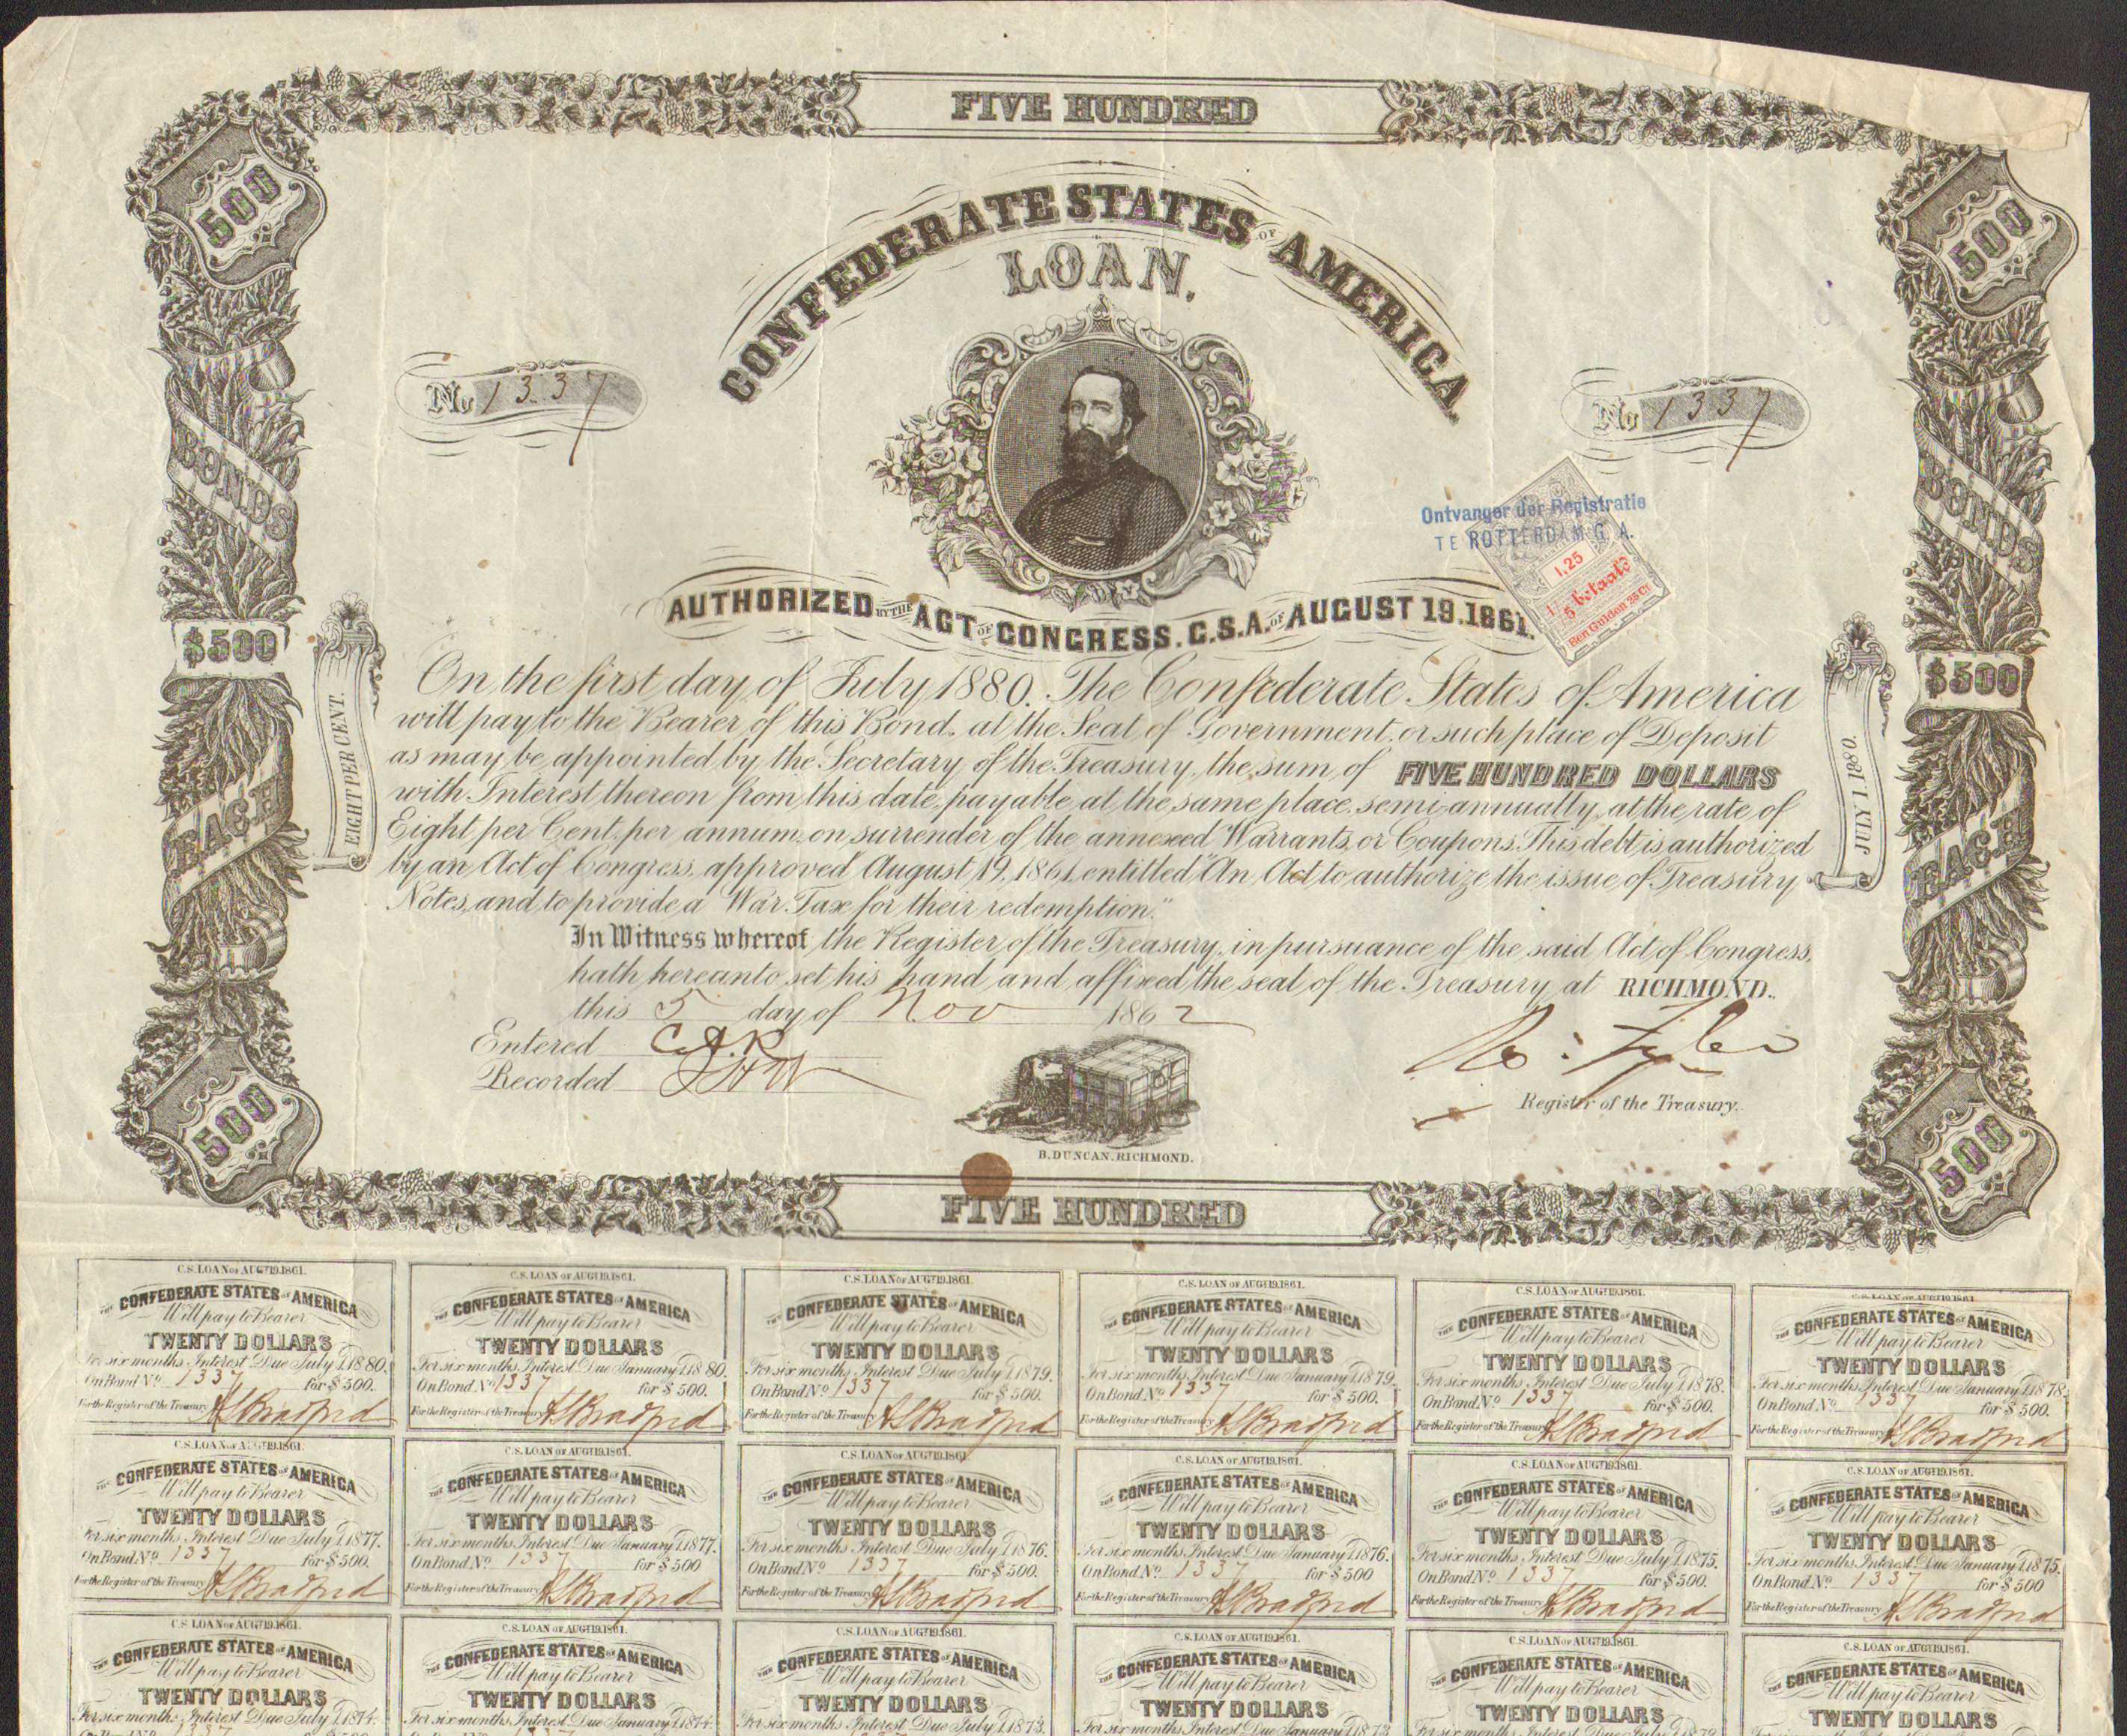 FIVE HUNDRED
500
500
CONFEDERATE STATES OF AMERICA
LOAN,
No 1337
No 1337
BONDS
BONDS
Ontvanger der Registratie
TE ROTTERDAM G. A.
1,25
Een Gulden 25 Ct
AUTHORIZED BY THE ACT OF CONGRESS. C.S.A. OF AUGUST 19.1861.
$500
$500
EIGHT PER CENT.
JULY 1. 1880.
EACH
EACH
On the first day of July 1880. The Confederate States of America
will pay to the Bearer of this Bond, at the Seat of Government, or such place of Deposit
as may be appointed by the Secretary of the Treasury, the sum of FIVE HUNDRED DOLLARS
with Interest thereon from this date, payable at the same place semi-annually, at the rate of
Eight per Cent. per annum on surrender of the annexed Warrants, or Coupons. This debt is authorized
by an Act of Congress, approved August 19, 1861, entitled "An Act to authorize the issue of Treasury
Notes, and to provide a War Tax for their redemption."
In Witness whereof the Register of the Treasury, in pursuance of the said Act of Congress,
hath hereunto set his hand and affixed the seal of the Treasury at RICHMOND.
this 5 day of Nov 1862
Entered C.A.R.
Recorded
Ro: Tyler
Register of the Treasury.
B. DUNCAN. RICHMOND.
500
500
FIVE HUNDRED
C.S. LOAN OF AUGT 19.1861.
THE CONFEDERATE STATES OF AMERICA
Will pay to Bearer
TWENTY DOLLARS
For six months Interest Due July 1.1880.
On Bond No. 1337 for $500.
For the Register of the Treasury A S Bradford
C.S. LOAN OF AUGT 19.1861.
THE CONFEDERATE STATES OF AMERICA
Will pay to Bearer
TWENTY DOLLARS
For six months Interest Due January 1.1880.
On Bond No. 1337 for $500.
For the Register of the Treasury A S Bradford
C.S. LOAN OF AUGT 19.1861.
THE CONFEDERATE STATES OF AMERICA
Will pay to Bearer
TWENTY DOLLARS
For six months Interest Due July 1.1879.
On Bond No. 1337 for $500.
For the Register of the Treasury A S Bradford
C.S. LOAN OF AUGT 19.1861.
THE CONFEDERATE STATES OF AMERICA
Will pay to Bearer
TWENTY DOLLARS
For six months Interest Due January 1.1879.
On Bond No. 1337 for $500.
For the Register of the Treasury A S Bradford
C.S. LOAN OF AUGT 19.1861.
THE CONFEDERATE STATES OF AMERICA
Will pay to Bearer
TWENTY DOLLARS
For six months Interest Due July 1.1878.
On Bond No. 1337 for $500.
For the Register of the Treasury A S Bradford
C.S. LOAN OF AUGT 19.1861.
THE CONFEDERATE STATES OF AMERICA
Will pay to Bearer
TWENTY DOLLARS
For six months Interest Due January 1.1878.
On Bond No. 1337 for $500.
For the Register of the Treasury A S Bradford
C.S. LOAN OF AUGT 19.1861.
THE CONFEDERATE STATES OF AMERICA
Will pay to Bearer
TWENTY DOLLARS
For six months Interest Due July 1.1877.
On Bond No. 1337 for $500.
For the Register of the Treasury A S Bradford
C.S. LOAN OF AUGT 19.1861.
THE CONFEDERATE STATES OF AMERICA
Will pay to Bearer
TWENTY DOLLARS
For six months Interest Due January 1.1877.
On Bond No. 1337 for $500
For the Register of the Treasury A S Bradford
C.S. LOAN OF AUGT 19.1861.
THE CONFEDERATE STATES OF AMERICA
Will pay to Bearer
TWENTY DOLLARS
For six months Interest Due July 1.1876.
On Bond No. 1337 for $500.
For the Register of the Treasury A S Bradford
C.S. LOAN OF AUGT 19.1861.
THE CONFEDERATE STATES OF AMERICA
Will pay to Bearer
TWENTY DOLLARS
For six months Interest Due January 1.1876.
On Bond No. 1337 for $500
For the Register of the Treasury A S Bradford
C.S. LOAN OF AUGT 19.1861.
THE CONFEDERATE STATES OF AMERICA
Will pay to Bearer
TWENTY DOLLARS
For six months Interest Due July 1.1875.
On Bond No. 1337 for $500.
For the Register of the Treasury A S Bradford
C.S. LOAN OF AUGT 19.1861.
THE CONFEDERATE STATES OF AMERICA
Will pay to Bearer
TWENTY DOLLARS
For six months Interest Due January 1.1875.
On Bond No. 1337 for $500
For the Register of the Treasury A S Bradford
C.S. LOAN OF AUGT 19.1861.
THE CONFEDERATE STATES OF AMERICA
Will pay to Bearer
TWENTY DOLLARS
For six months Interest Due July 1.1874.
C.S. LOAN OF AUGT 19.1861.
THE CONFEDERATE STATES OF AMERICA
Will pay to Bearer
TWENTY DOLLARS
For six months Interest Due January 1.1874.
C.S. LOAN OF AUGT 19.1861.
THE CONFEDERATE STATES OF AMERICA
Will pay to Bearer
TWENTY DOLLARS
For six months Interest Due July 1.1873.
C.S. LOAN OF AUGT 19.1861.
THE CONFEDERATE STATES OF AMERICA
Will pay to Bearer
TWENTY DOLLARS
For six months Interest Due January 1.1873
C.S. LOAN OF AUGT 19.1861.
THE CONFEDERATE STATES OF AMERICA
Will pay to Bearer
TWENTY DOLLARS
C.S. LOAN OF AUGT 19.1861.
THE CONFEDERATE STATES OF AMERICA
Will pay to Bearer
TWENTY DOLLARS